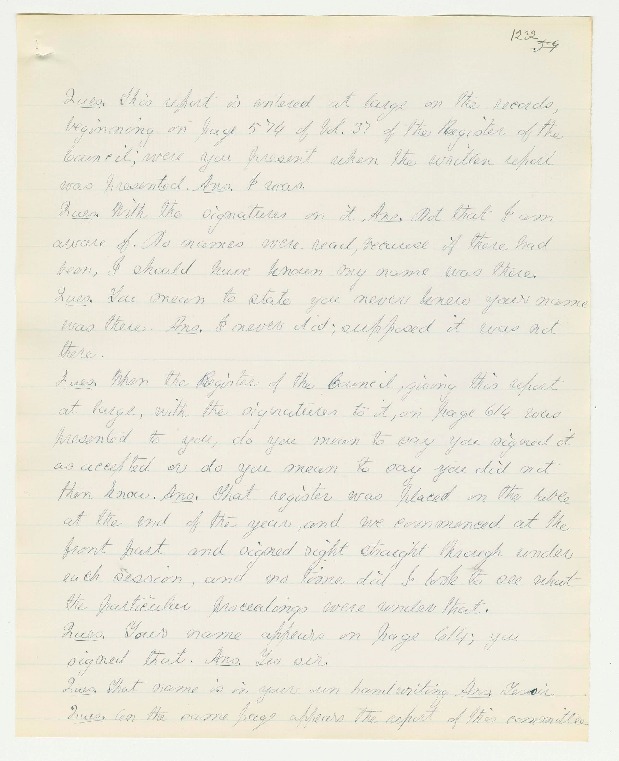 1232
59
Ques. This report is entered at large on the records,
beginning on page 574 of Vol. 37 of the Register of the
Council; were you present when the written report
was presented. Ans. I was.
Ques. With the signatures on it. Ans. Not that I am
aware of. No names were read, because if there had
been, I should have known my name was there.
Ques. You mean to state you never knew your name
was there. Ans. I never did; supposed it was not
there.
Ques. When the Register of the Council, giving this report
at large, with the signatures to it, on page 614 was
presented to you, do you mean to say you signed it
as accepted or do you mean to say you did not
then know. Ans. That register was placed on the table
at the end of the year, and we commenced at the
front part and signed right straight through under
each session, and no time did I look to see what
the particular proceedings were under that.
Ques. Your name appears on page 614; you
signed that. Ans. Yes sir.
Ques. That name is in your own handwriting Ans. Yes sir
Ques. On the same page appears the report of this committee